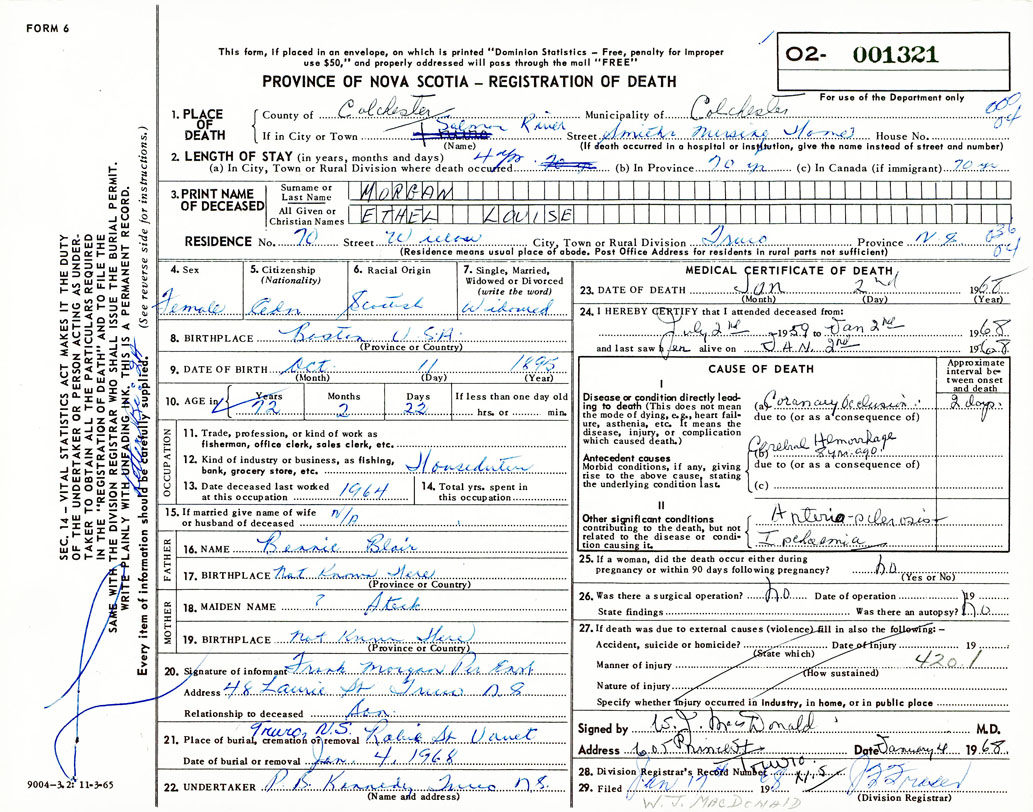 FORM 6
This form, if placed in an envelope, on which is printed "Dominion Statistics – Free, penalty for improper
use $50," and properly addressed will pass through the mail "FREE"
PROVINCE OF NOVA SCOTIA – REGISTRATION OF DEATH
O2- 001321
For use of the Department only
1. PLACE OF DEATH
County of Colchester Municipality of Colchester
If in City or Town Salmon River Street Smiths Nursing Home House No.
(Name) (If death occurred in a hospital or institution, give the name instead of street and number)
2. LENGTH OF STAY (in years, months and days)
(a) In City, Town or Rural Division where death occurred 4 yr. (b) In Province 70 yr (c) In Canada (if immigrant) 70 yr
3. PRINT NAME OF DECEASED
Surname or Last Name MORGAN
All Given or Christian Names ETHEL LOUISE
RESIDENCE No. 70 Street Willow City, Town or Rural Division Truro Province N S
(Residence means usual place of abode. Post Office Address for residents in rural parts not sufficient)
4. Sex
Female
5. Citizenship
(Nationality)
Cdn
6. Racial Origin
Scotish
7. Single, Married,
Widowed or Divorced
(write the word)
Widowed
8. BIRTHPLACE Boston U.S.A.
(Province or Country)
9. DATE OF BIRTH Oct 11 1895
(Month) (Day) (Year)
10. AGE in Years Months Days If less than one day old
72 2 22 hrs. or min.
OCCUPATION
11. Trade, profession, or kind of work as
fisherman, office clerk, sales clerk, etc.
12. Kind of industry or business, as fishing,
bank, grocery store, etc.
13. Date deceased last worked
at this occupation 1964
14. Total yrs. spent in
this occupation
15. If married give name of wife
or husband of deceased N/A
FATHER
16. NAME Bennie Blair
17. BIRTHPLACE Not Known Here
(Province or Country)
MOTHER
18. MAIDEN NAME ?
19. BIRTHPLACE Not Known Here
(Province or Country)
20. Signature of informant Frank Morgan Per
Address 48 Laurie St Truro N S
Relationship to deceased Son
21. Place of burial, cremation or removal Truro, N.S. Robie St
Date of burial or removal Jan. 4, 1968
22. UNDERTAKER P. B. Kennedy Truro N.S.
(Name and address)
MEDICAL CERTIFICATE OF DEATH
23. DATE OF DEATH Jan 2nd 1968
(Month) (Day) (Year)
24. I HEREBY CERTIFY that I attended deceased from:
July 2nd 1959 to Jan 2nd 1968
and last saw her alive on JAN. 2nd 1968
CAUSE OF DEATH
Approximate
interval be-
tween onset
and death
I
Disease or condition directly lead-
ing to death (This does not mean
the mode of dying, e.g., heart fail-
ure, asthenia, etc. It means the
disease, injury, or complication
which caused death.)
(a) Coronary Occlusion 2 days.
due to (or as a consequence of)
Antecedent causes
Morbid conditions, if any, giving
rise to the above cause, stating
the underlying condition last.
(b) Cerebral Hemorrhage
8 yrs. ago.
due to (or as a consequence of)
(c)
II
Other significant conditions
contributing to the death, but not
related to the disease or condi-
tion causing it.
25. If a woman, did the death occur either during
pregnancy or within 90 days following pregnancy? No
(Yes or No)
26. Was there a surgical operation? No Date of operation 19
State findings Was there an autopsy? No
27. If death was due to external causes (violence) fill in also the following: –
Accident, suicide or homicide? Date of injury 19
(State which)
Manner of injury 420.1
(How sustained)
Nature of injury
Specify whether injury occurred in industry, in home, or in public place
Signed by W. J. MacDonald M.D.
Address 605 Prince St Truro N.S. Date January 4 1968.
28. Division Registrar's Record Number
29. Filed Jan 17 1968
(Division Registrar)
W. J. MACDONALD
SEC. 14 – VITAL STATISTICS ACT MAKES IT THE DUTY
OF THE UNDERTAKER OR PERSON ACTING AS UNDER-
TAKER TO OBTAIN ALL THE PARTICULARS REQUIRED
IN THE "REGISTRATION OF DEATH" AND TO FILE THE
SAME WITH THE DIVISION REGISTRAR WHO SHALL ISSUE THE BURIAL PERMIT.
WRITE PLAINLY WITH UNFADING INK. THIS IS A PERMANENT RECORD.
Every item of information should be carefully supplied. (See reverse side for instructions.)
9004-3.2: 11-3-65